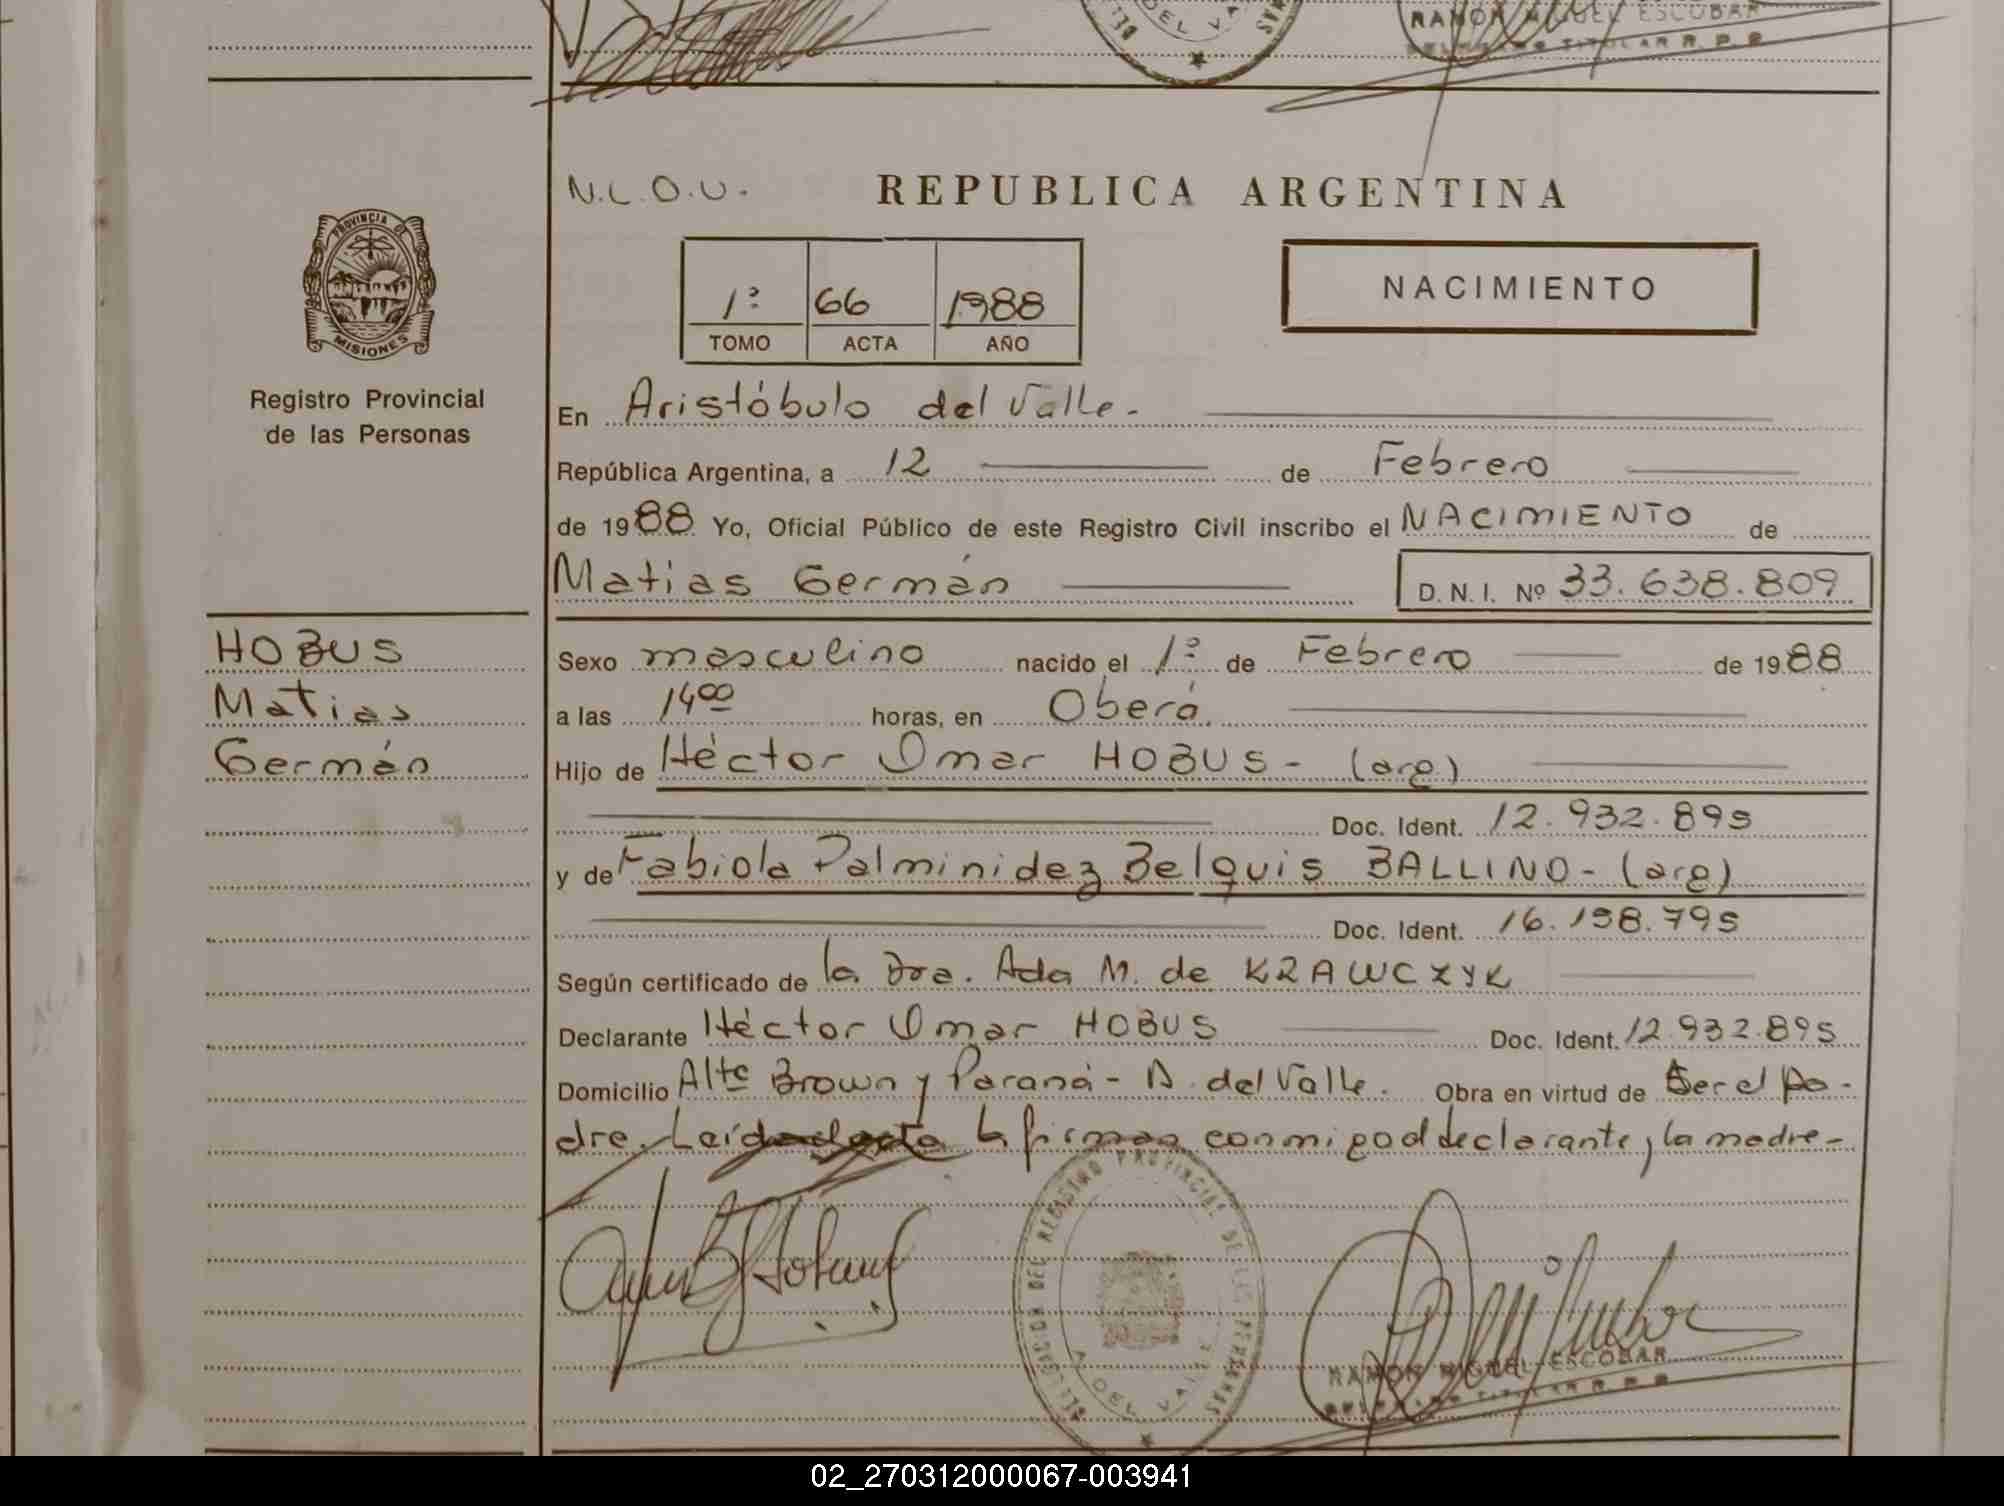 DEL VA
RAMON MIGUEL ESCOBAR
TITULAR R. P. P.
N.L.O.U.
REPUBLICA ARGENTINA
PROVINCIA D
MISIONES
1º 66 1988
TOMO ACTA AÑO
NACIMIENTO
Registro Provincial
de las Personas
En Aristóbulo del Valle.
República Argentina, a 12 de Febrero
de 1988 Yo, Oficial Público de este Registro Civil inscribo el NACIMIENTO de
Matias Germán D. N. I. Nº 33.638.809
HOBUS
Matias
Germán
Sexo masculino nacido el 1º de Febrero de 1988
a las 14 00 horas, en Oberá.
Hijo de Héctor Omar HOBUS - (arg)
Doc. Ident. 12.932.895
y de Fabiola Palminidez Belquis BALLINO - (arg)
Doc. Ident. 16.158.795
Según certificado de la Dra. Ada M. de KRAWCZYK
Declarante Héctor Omar HOBUS Doc. Ident. 12.932.895
Domicilio Alte Brown y Paraná - A. del Valle. Obra en virtud de Ser el pa-
dre. Leída el acta la firman conmigo el declarante y la madre-
DELEGACION DEL REGISTRO PROVINCIAL DE LAS PERSONAS
A. DEL VALLE
RAMON MIGUEL ESCOBAR
TITULAR R. P. P.
02_270312000067-003941